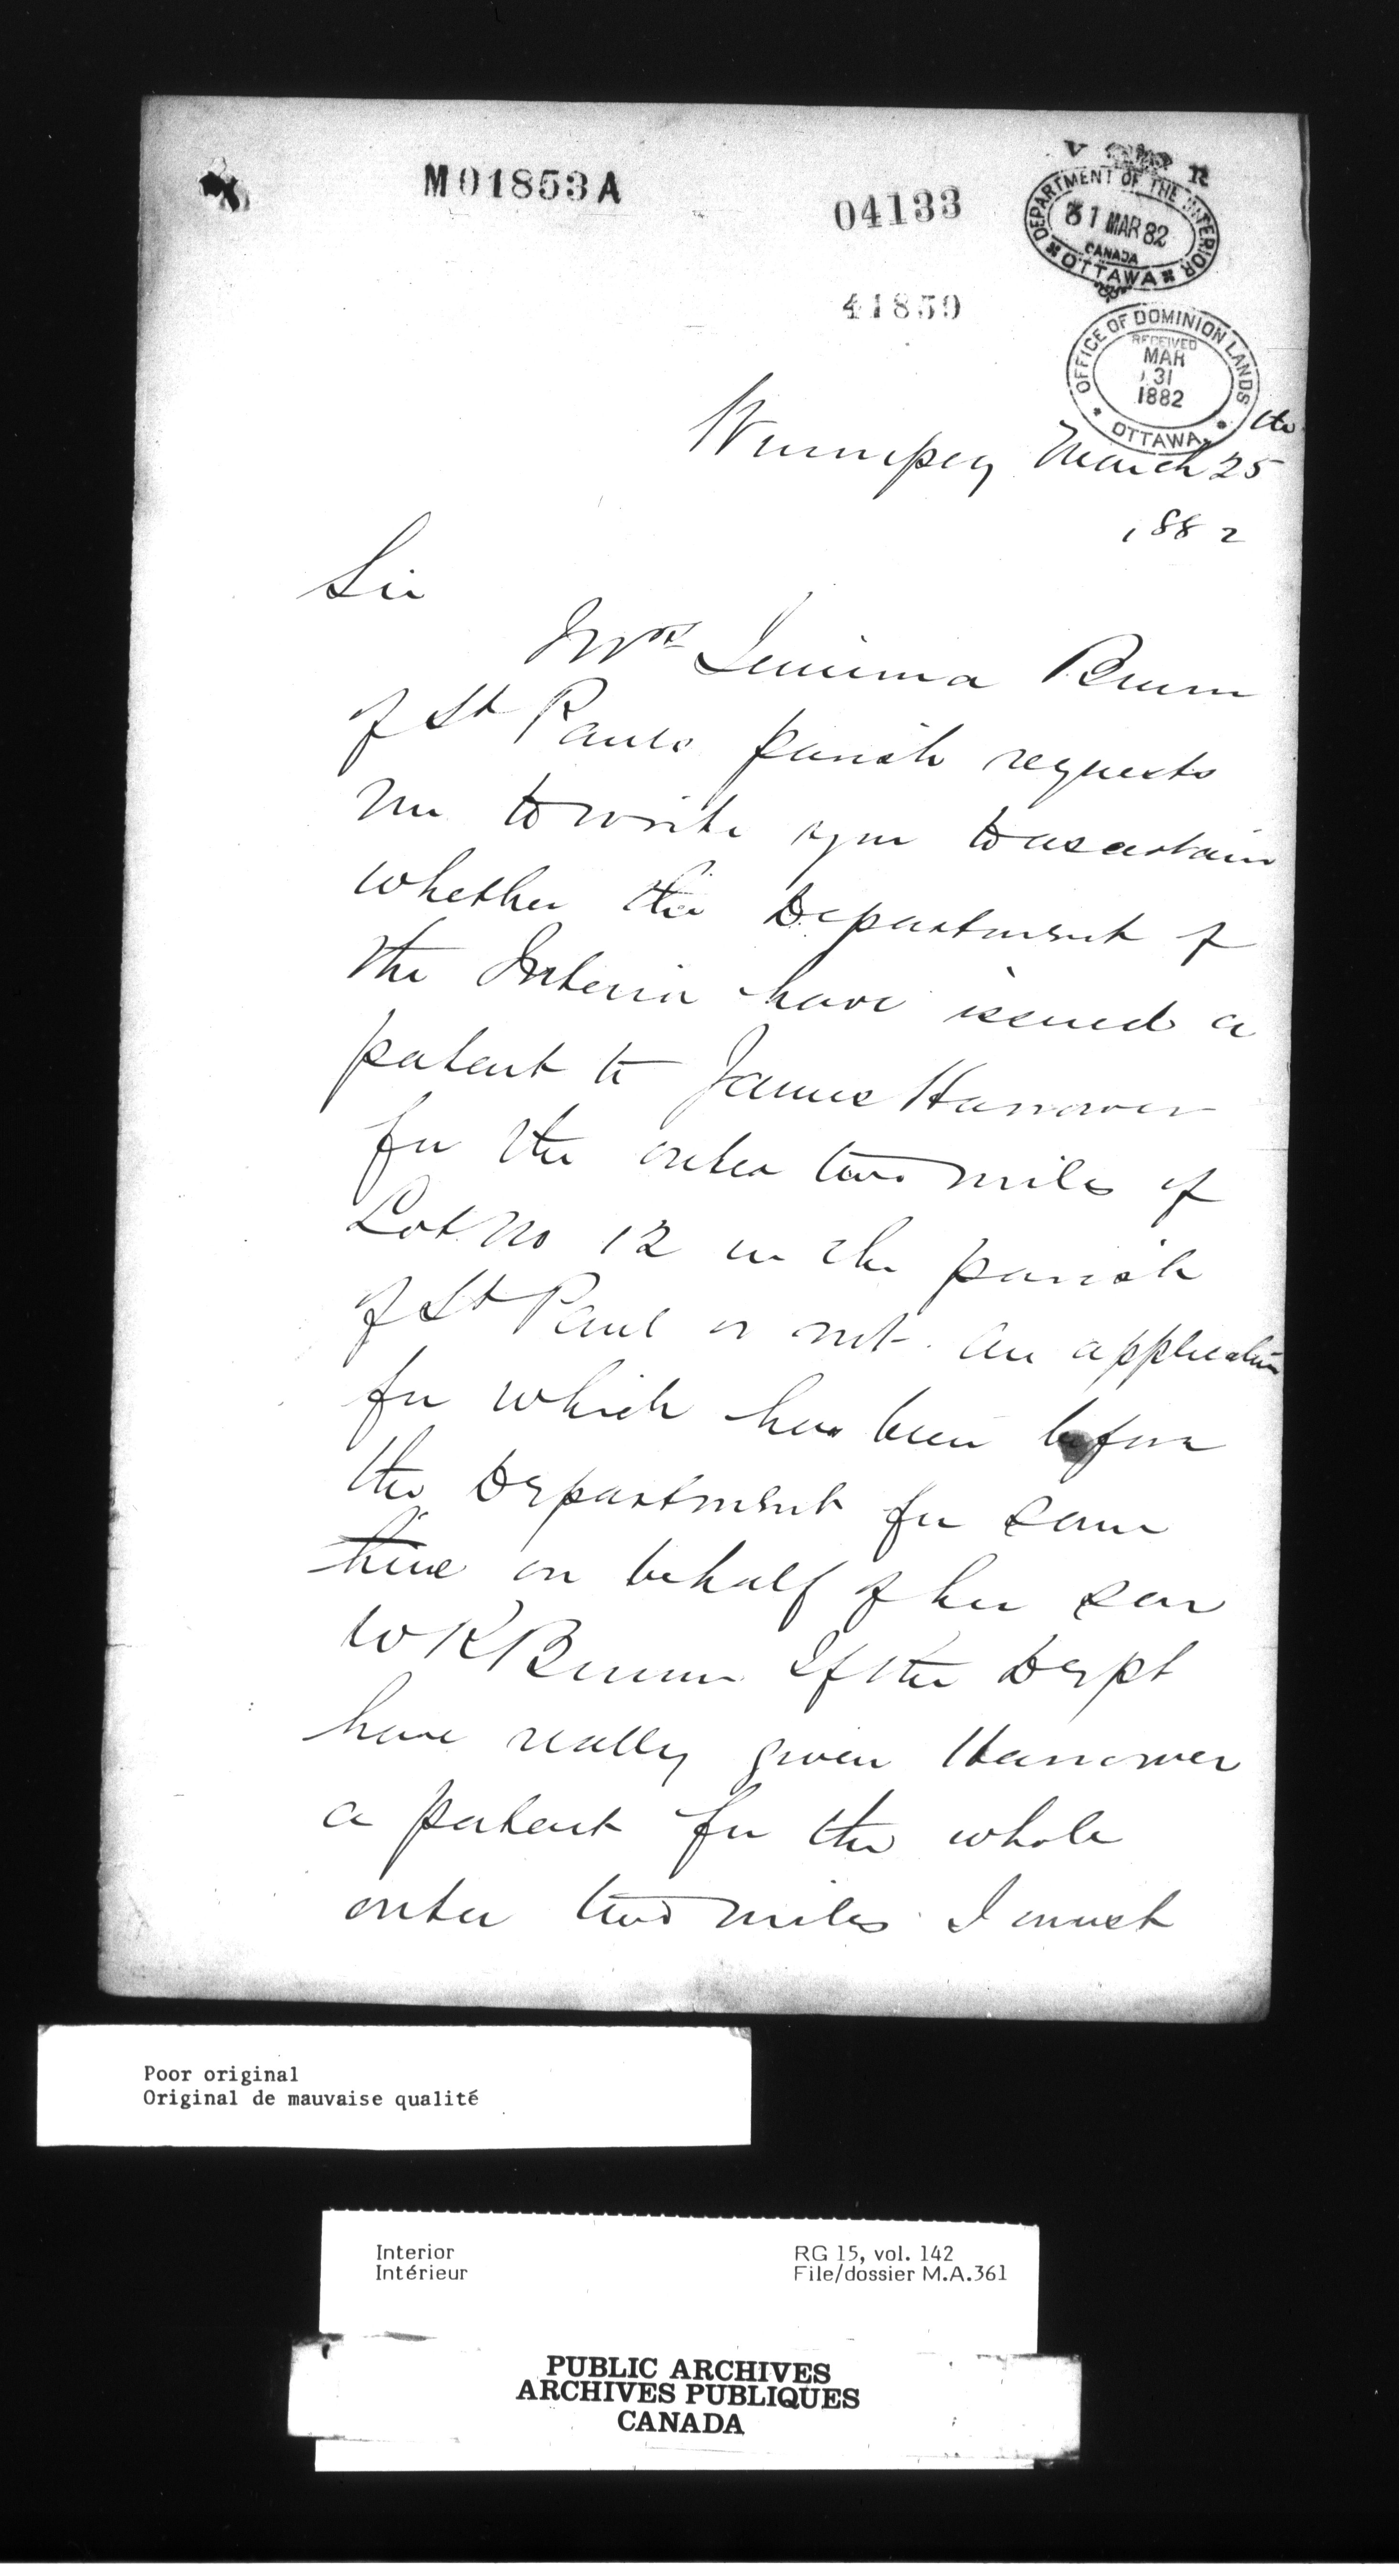 M01853A
04133
V R
DEPARTMENT OF THE INTERIOR
31 MAR 82
CANADA
OTTAWA
41859
OFFICE OF DOMINION LANDS
RECEIVED
MAR
31
1882
OTTAWA
Winnipeg March 25th
1882
Sir
Mrs Jemima Bunn
of St Pauls parish requests
me to write you to ascertain
whether the Department of
the Interior have issued a
patent to James Hanover
for the outer two miles of
Lot No 12 in the parish
of St Paul or not. An application
for which has been before
the Department for some
time on behalf of her son
W R Bunn If the Dept
have really given Hanover
a patent for the whole
outer two miles I must
Poor original
Original de mauvaise qualité
Interior
Intérieur
RG 15, vol. 142
File/dossier M.A.361
PUBLIC ARCHIVES
ARCHIVES PUBLIQUES
CANADA